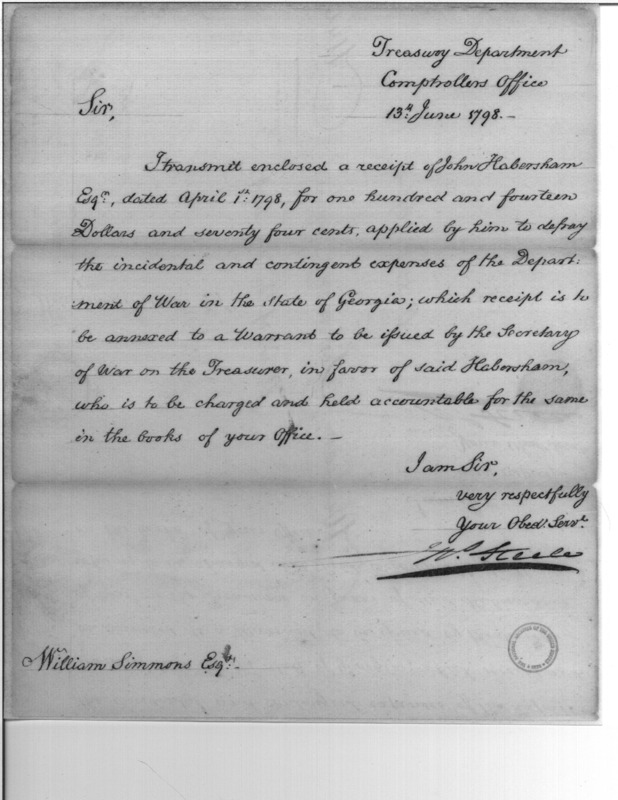 Treasury Department
Comptrollers Office
13th June 1798.—
Sir,
I transmit enclosed a receipt of John Habersham
Esqr., dated April 1st. 1798, for one hundred and fourteen
Dollars and seventy four cents, applied by him to defray
the incidental and contingent expenses of the Depart:
ment of War in the State of Georgia; which receipt is to
be annexed to a Warrant to be issued by the Secretary
of War on the Treasurer, in favor of said Habersham,
who is to be charged and held accountable for the same
in the books of your Office.—
I am Sir,
very respectfully
Your Obedt. Servt.
Steele
William Simmons Esqr.